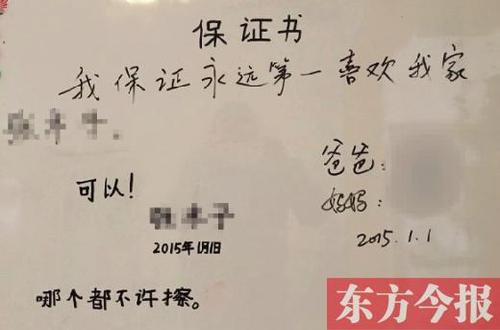 保证书
我保证永远第一喜欢我家
爸爸：
妈妈：
2015.1.1
可以！
2015年1月1日
哪个都不许擦。
东方今报